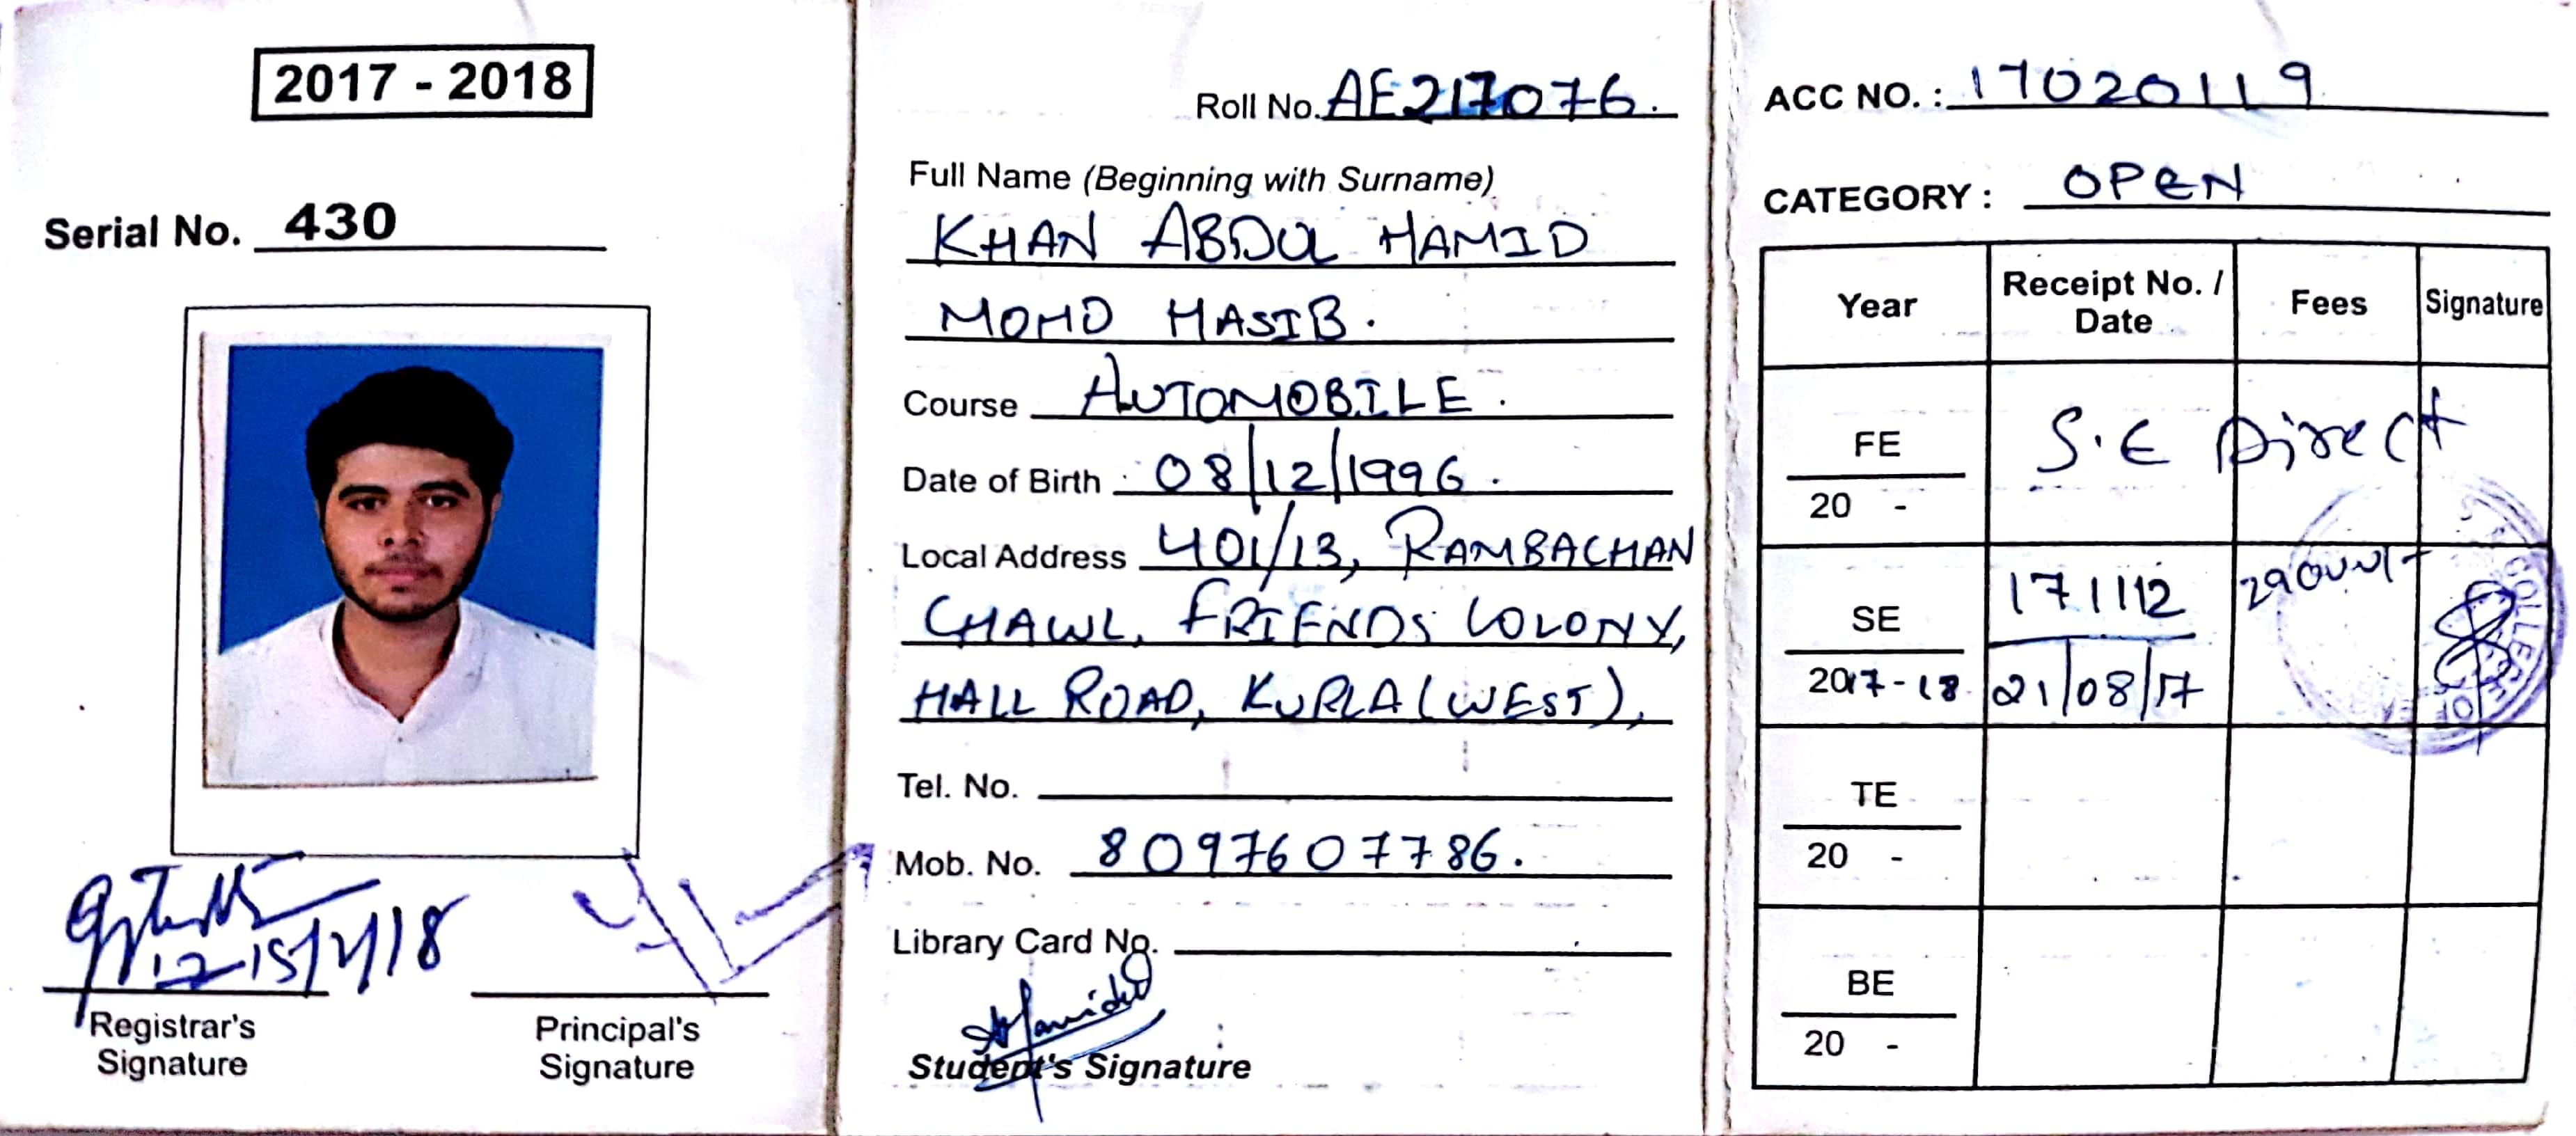 2017 - 2018
Serial No. 430
17 15/2/18
Registrar's
Signature
Principal's
Signature
Roll No. AE217076.
Full Name (Beginning with Surname)
KHAN ABDUL HAMID
MOHD HASIB.
Course AUTOMOBILE.
Date of Birth 08/12/1996.
Local Address 401/13, RAMBACHAN
CHAWL, FRIENDS COLONY,
HALL ROAD, KURLA (WEST),
Tel. No.
Mob. No. 8097607786.
Library Card No.
Student's Signature
ACC NO. : 17020119
CATEGORY : OPEN
Year Receipt No. / Date Fees Signature
FE S.E Direct
20 -
SE 171112
2017-18 21/08/17
COLLEGE OF
TE
20 -
BE
20 -